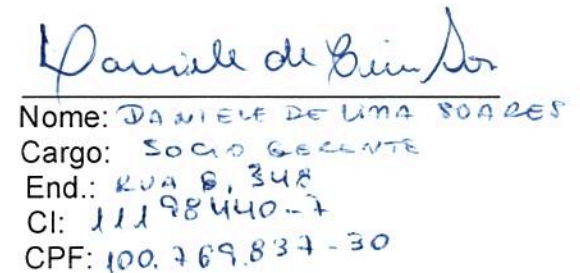 Daniele de Lima Soares
Nome: DANIELE DE LIMA SOARES
Cargo: SOCIO GERENTE
End.: RUA 8, 348
CI: 11198440-7
CPF: 100.769.837-30